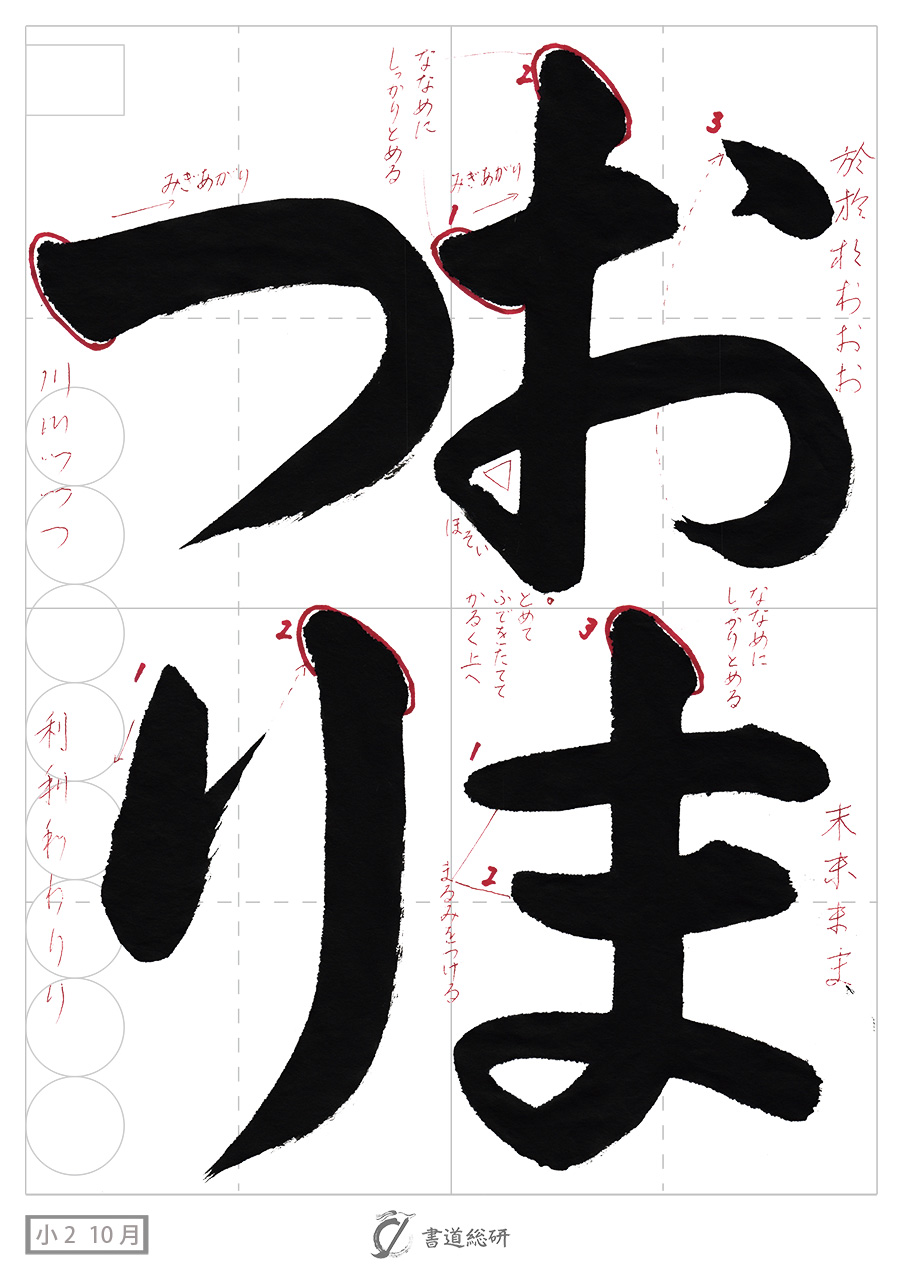 おま
つり
2
ななめに
しっかりとめる
みぎあがり
1
3
於
お
お
お
ほそい
みぎあがり
川
川
つ
つ
つ
3
ななめに
しっかりとめる
とめて
ふでをたてて
かるく上へ
1
2
まるみをつける
末
末
ま
ま
2
1
利
利
り
り
小2 10月
書道総研